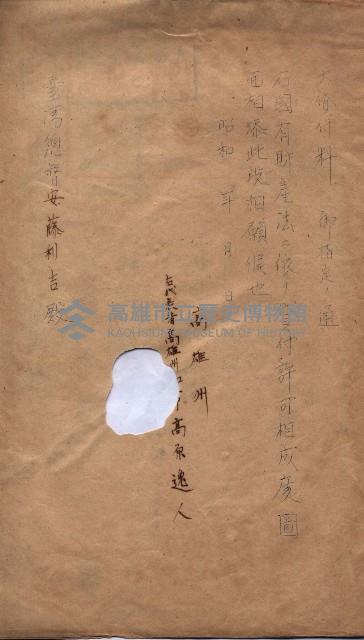 六、貸付料 御指定ノ通
右國有財産法ニ依リ貸付許可相成度圖
面相添此段相願候也
昭和 年 月 日
高雄州
右代表者高雄州知事高原逸人
臺灣總督安藤利吉殿
高雄市立歷史博物館
KAOHSIUNG MUSEUM OF HISTORY